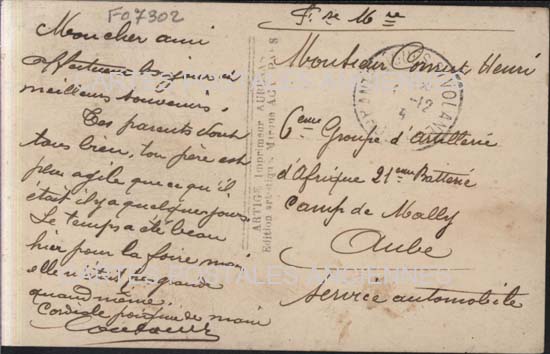 F07302
F^se M^re
Mon cher ami
affectueux bonjour et
meilleurs souvenirs.
Tes parents sont
tous bien, ton père est
plus agile que ce qu'il
était il y a quelques jours
Le temps a été beau
hier pour la foire mais
elle n'était pas grande
quand même.
Cordiale poignée de main
ARTIGE Imprimeur AURILLAC
Edition artistique
Monsieur Henri
6eme Groupe d'Artillerie
d'Afrique 21eme Batterie
Camp de Mailly
Aube
Service automobile
CARTES POSTALES ANCIENNES